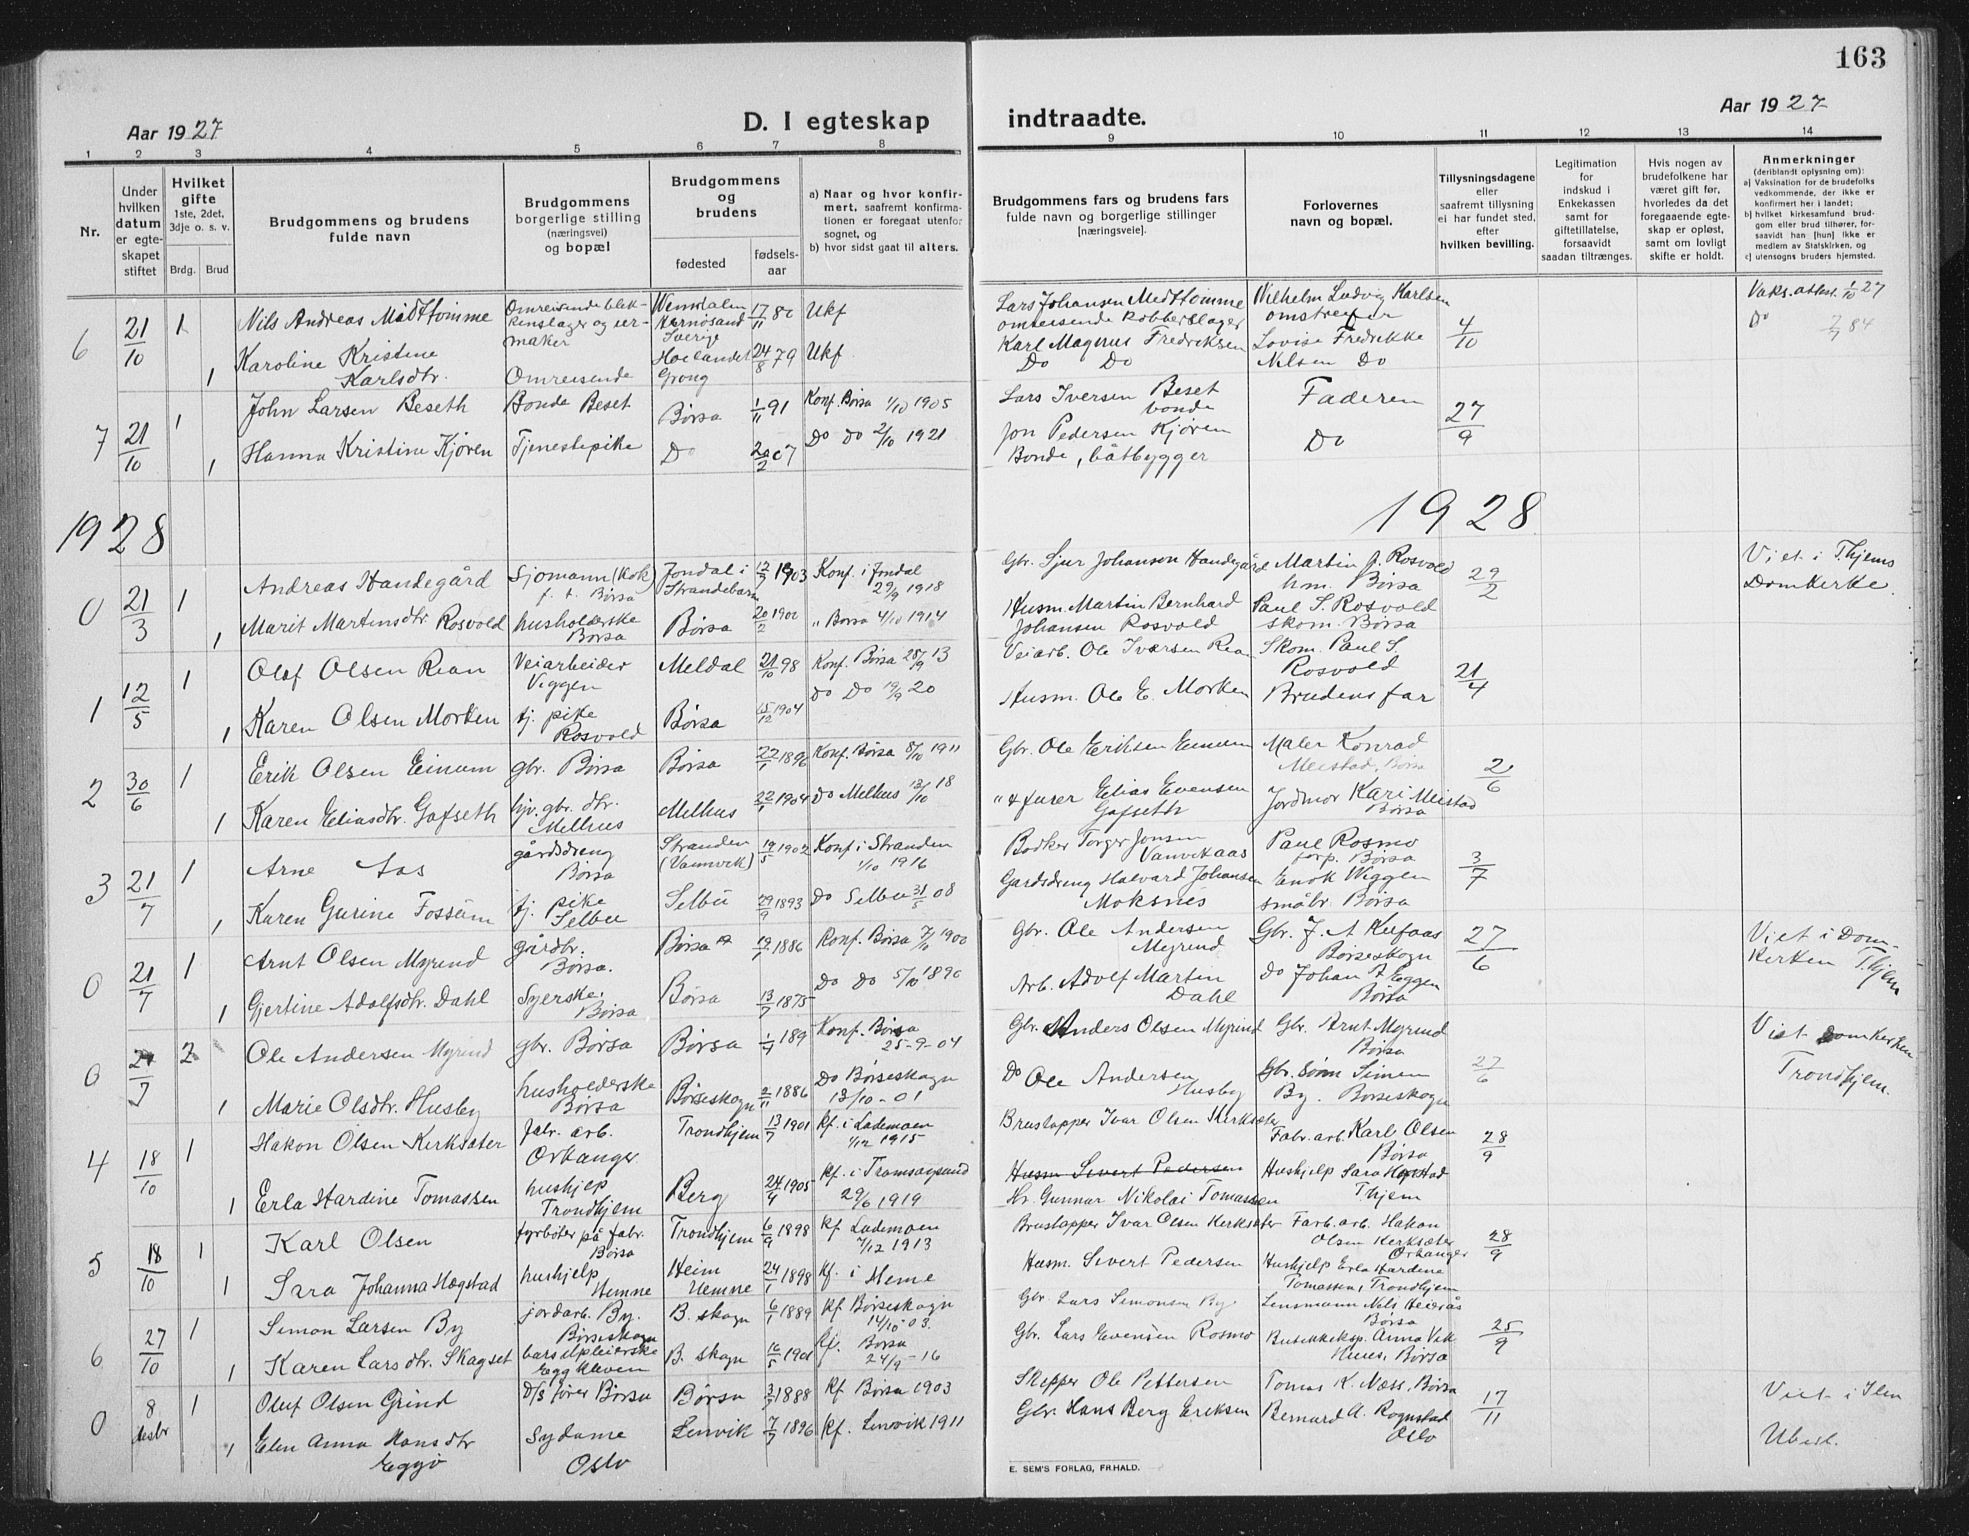 163
Aar 1927
D. I egteskap
indtraadte.
Aar 1927
1 2 3 4 5 6 7 8
9 10 11 12 13 14
Nr.
Under hvilken datum er egte-skapet stiftet
Hvilket gifte
1ste, 2det, 3dje o. s. v.
Brdg. Brud
Brudgommens og brudens
fulde navn
Brudgommens
borgerlige stilling
(næringsvei)
og bopæl
Brudgommens
og
brudens
fødested
fødsels-aar
a) Naar og hvor konfir-
mert, saafremt konfirma-
tionen er foregaat utenfor
sognet, og
b) hvor sidst gaat til alters.
Brudgommens fars og brudens fars
fulde navn og borgerlige stillinger
[næringsveie].
Forlovernes
navn og bopæl.
Tillysningsdagene
eller
saafremt tillysning
ei har fundet sted,
efter
hvilken bevilling.
Legitimation
for
indskud i
Enkekassen
samt for
giftetillatelse,
forsaavidt
saadan tiltrænges.
Hvis nogen av
brudefolkene har
været gift før,
hvorledes da det
foregaaende egte-
skap er opløst,
samt om lovligt
skifte er holdt.
Anmerkninger
(deriblandt oplysning om):
a) Vaksination for de brudefolks
vedkommende, der ikke er
konfirmert her i landet;
b) hvilket kirkesamfund brud-
gom eller brud tilhører, for-
saavidt han [hun] ikke er
medlem av Statskirken, og
c) utensogns bruders hjemsted.
6 21/10 1 Nils Andreas Midttømme Omreisende blik-kenslager og ur-maker Hernøsand Sverige 17/11 Ukf
Lars Johansen Midttømme omreisende Kobberslager Wilhelm Ludvig Karlsen omstreifer 4/10 Vaks.attest 1/10 27
1 Karoline Kristine Karlsdtr. Omreisende Høilandet Grong 24/8 79 Ukf
Karl Magnus Fredriksen Do Do Lovise Fredrikke Nilsen Do Do 84
7 21/10 1 John Larsen Beseth Bonde Beset Børsa 1/11 91 Konf. Børsa 1/10 1905
Lars Iversen Beset bonde Faderen 27/9
1 Hanna Kristine Kjøren Tjenestepike Do 20/2 07 Do Do 2/10 1921
Jon Pedersen Kjøren Bonde, båtbygger Do
1928
1928
0 21/3 1 Andreas Handegård Sjømann (Kok) f. t. Børsa Jondal i Strandebarm 12/7 1903 Konf. i Jondal 29/9 1918
Gbr. Sjur Johanson Handegård Martin J. Rosvold hm. Børsa 29/2 Viet i Thjems Domkirke.
1 Marit Martinsdtr Rosvold husholderske Børsa Børsa 20/2 1900 " Børsa 4/10 1914
Husm. Martin Bernhard Johansen Rosvold Paul S. Rosvold skom. Børsa
1 12/5 1 Olaf Olsen Rian Veiarbeider Viggen Meldal 21/10 98 Konf. Børsa 28/9 13
Veiarb. Ole Iversen Rian Skom. Paul S. Rosvold 21/4
1 Karen Olsen Morken tj. pike Rosvold Børsa 15/12 1904 Do Do 19/9 20
Husm. Ole E. Morken Brudens far
2 30/6 1 Erik Olsen Einum gbr. Børsa Børsa 22/1 1896 Konf. Børsa 8/10 1911
Gbr. Ole Eriksen Einum Maler Konrad Meistad, Børsa 2/6
1 Karen Eliasdtr. Gafseth hjv. gbr. dtr. Melhus Melhus 22/1 1904 Do Melhus 13/10 18
" & furer Elias Evensen Gafseth Jordmor Kari Meistad Børsa
3 21/7 1 Arne Aas gårdsdreng Børsa Stranden (Vanvik) 19/5 1902 Konf i Stranden 1/10 1916
Bødker Torger Jonsen Vanvikaas Paul Rosmo forp. Børsa 3/7
1 Karen Gurine Fossum tj. pike Selbu Selbu 29/9 1893 Do Selbu 31/5 08
Gardsdreng Halvard Johansen Moksnes Enok Wiggen småbr. Børsa
0 21/7 1 Arnt Olsen Myrind gårdbr. Børsa. Børsa 19/1 1886 Konf. Børsa 7/10 1900
Gbr. Ole Andersen Myrind Gbr. J. A Børseskogn 27/6 Viet i Dom-kirken Thjem
1 Gjertine Adolfsdtr. Dahl Syerske. Børsa Børsa 13/7 1875 Do Do 5/10 1890
Arb. Adolf Martin Dahl Do Johan A Eggen Børsa
0 21/7 2 Ole Andersen Myrind gbr. Børsa Børsa 189 Konf. Børsa 25-9-04
Gbr. Anders Olsen Myrind Gbr. Arnt Myrind Børsa 27/6 Viet Domkirken Trondhjem.
1 Marie Olsdtr. Husby husholderske Børsa Børseskogn 2/11 1886 Do Børseskogn 13/10 - 01
Do Ole Andersen Husby Gbr. Simen By. Børseskogn
4 18/10 1 Hakon Olsen Kirksæter fabr. arb. Orkanger Trondhjem 13/7 1901 kf. i Lademoen 1/12 1915
Brustapper Ivar Olsen Kirksæter Fabr. arb. Karl Olsen Børsa 28/9
1 Erla Hardine Tomassen hushjelp Trondhjem Berg 24/9 1905 kf. i Tromsøysund 29/6 1919
Husm Sivert Pedersen
Hr. Gunnar Nikolai Tomassen Hushjelp Sara Hægstad Thjem
5 18/10 1 Karl Olsen fyrbøter på fabr. Børsa Trondhjem 6/9 1898 kf Lademoen 7/12 1913
Brustapper Ivar Olsen Kirksæter Farb. arb. Hakon Olsen Kirksæter Orkanger 28/9
1 Sara Johanna Hægstad hushjelp Hemne Heim Hemne 24/1 1898 kf. i Heme
Husm. Sivert Pedersen Hushjelp Erla Hardine Tomassen, Trondhjem
6 27/10 1 Simon Larsen By jordarb. By. Børseskogn B. skogn 6/1 1889 kf Børseskogn 14/10 - 03.
Gbr. Lars Simonsen By Lensmann Nils Børsa 25/9
1 Karen Larsdtr. Skagset barselpleierske Eggkleven B. skogn 16/5 1901 kf. Børsa 24/9 - 16
Gbr. Lars Evensen Rosmo Butikkeksp. Anna Børsa
0 8 desbr 1 Oluf Olsen Grind D/s fører Børsa Børsa 3/7 1888 kf Børsa 1903
Skipper Ole Pettersen Tomas K. Næss, Børsa 17/11 Viet i Ilen
1 Elen Anna Hansdtr Eggjø Sydame Oslo Lenvik 7/7 1896 kf. Lenvik 1911
Gbr. Hans Berg Eriksen Bernard A. Rognstad Oslo
E. SEM'S FORLAG, FR.HALD.